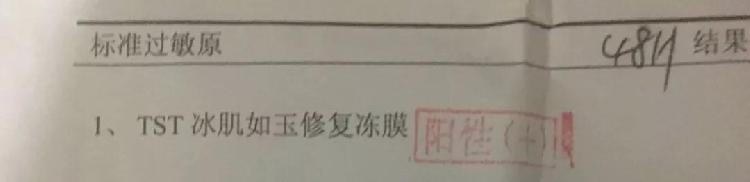 标准过敏原 48H 结果
1、 TST 冰肌如玉修复冻膜 阳性(+)